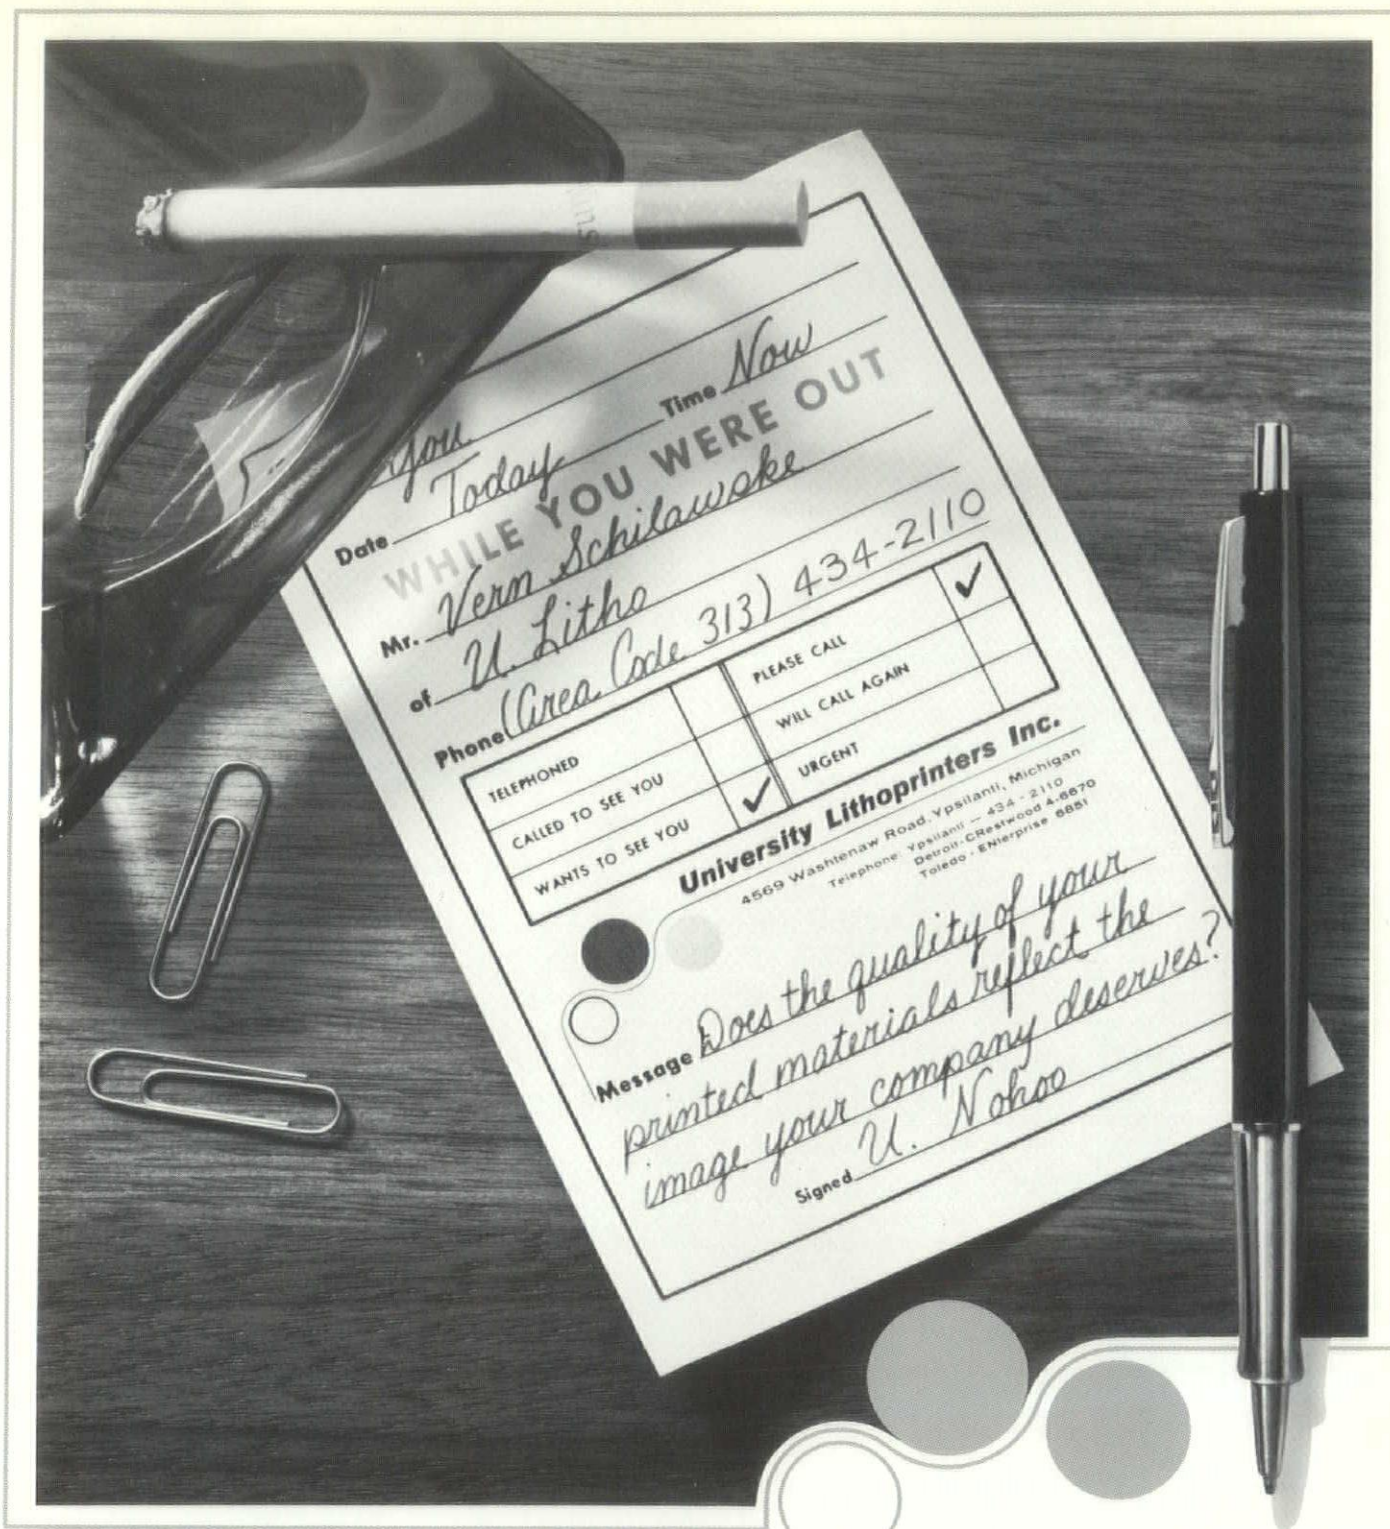 You
Date Today Time Now
WHILE YOU WERE OUT
Mr. Vern Schilawske
of U. Litho
Phone (Area Code 313) 434-2110
TELEPHONED
PLEASE CALL ✓
CALLED TO SEE YOU
WILL CALL AGAIN
WANTS TO SEE YOU ✓
URGENT
University Lithoprinters Inc.
4569 Washtenaw Road, Ypsilanti, Michigan
Telephone: Ypsilanti — 434 - 2110
Detroit - CRestwood 4-6670
Toledo - ENterprise 6851
Message Does the quality of your
printed materials reflect the
image your company deserves?
Signed U. Nohoo